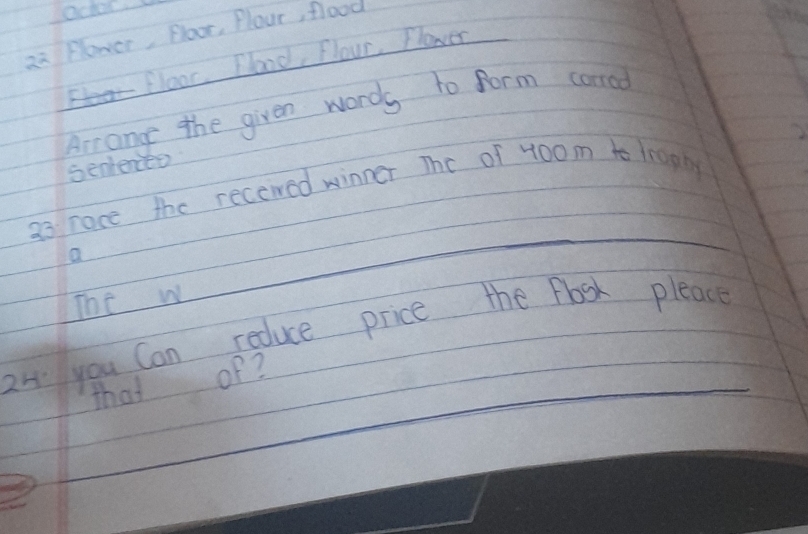 22 Flower, Floor, Flour, flood
Floor, Flood, Flour, Flower
Arrange the given words to form correct
sentences
23 race the received winner The of 400m to trophy
a
The w
24. you Can reduce price the flask pleace
that of?